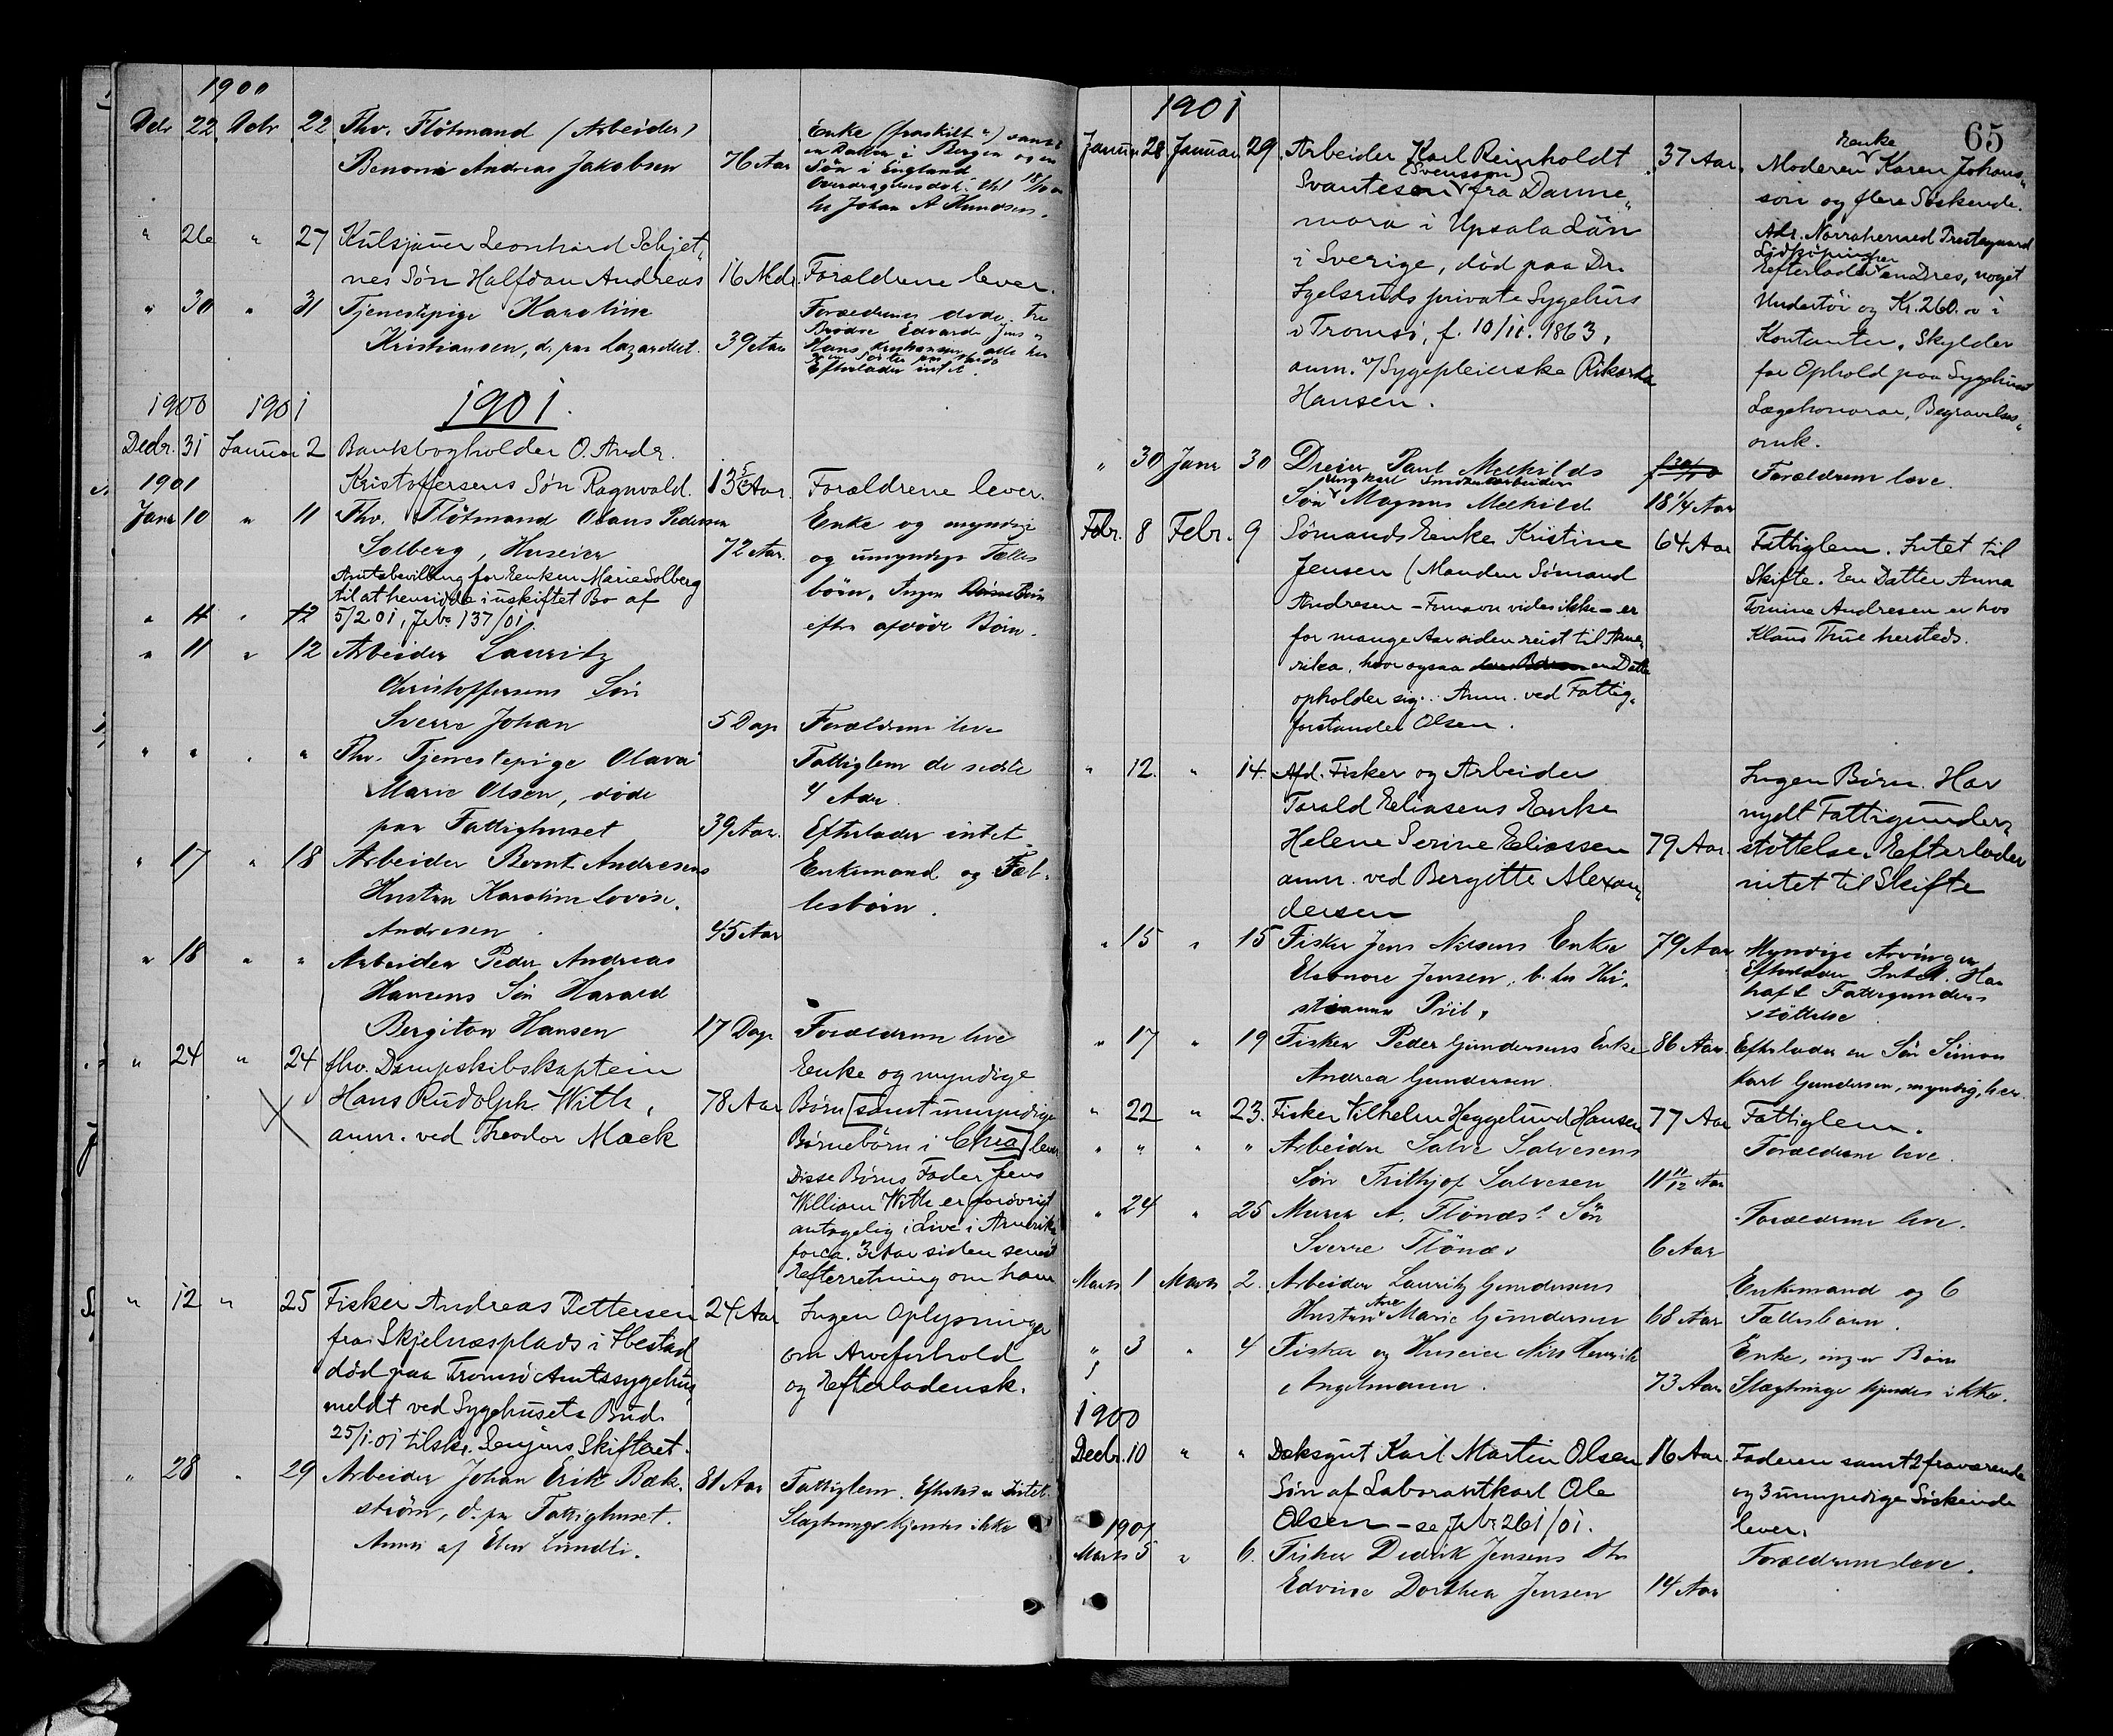 1900
Decbr 22 Decbr 22 Fhv. Flötmand (Arbeider)
Benoni Andreas Jakobsen 76 Aar
Enke (fraskilt) samt
en Datter i Bergen og en
Søn i England
Johan A Knudsen.
" 26 " 27 Kulsjauer Leonhard Schjet„
nes Søn Halfdan Andreas 16 Mdr. Forældrene lever.
" 30 " 31 Tjenestepige Karoline
Kristiansen, d. paa Lazarettet. 39 Aar
Forældrene døde. Tre
Brødre Edvard Jens og
Hans Kristiansen alle her
Efterlader intet.
1900 1901 1901.
Decbr. 31 Januar 2 Bankbogholder O. Andr.
Kristoffersens Søn Ragnvald. 13 5/12 Aar. Forældrene lever.
1901
Janr 10 " 11 Fhv. Flötmand Olaus Pedersen
Solberg, Huseier 72 Aar.
Amtsbevilling for Enken Marie Solberg
til at hensidde i uskiftet Bo af
5/2 01, Jr. No. 137/01.
Enke og myndige
og umyndige Fælles
børn. Ingen
efter afdöde Børn.
" 11 " 12
" 11 " 12 Arbeider Lauritz
Christoffersens Søn
Sverre Johan 5 Dage Forældrene leve
" " " " Fhv. Tjenestepige Olava
Marie Olsen, døde
paa Fattighuset 39 Aar.
Fattiglem de sidste
4 Aar.
Efterlader intet.
" 17 " 18 Arbeider Bernt Andresens
Hustru Karoline Lovise
Andresen. 45 Aar
Enkemand og Fæl„
lesbørn.
" 18 " " Arbeider Peder Andreas
Hansens Søn Harald
Bergiton Hansen 17 Dage Forældrene leve
" 24 " 24 fhv. Dampskibskaptein
Hans Rudolph With, 78 Aar
anm. ved Theodor Mack
Enke og myndige
Børn [samt umyndige
Børnebörn i Chra] lever
Disse Børns Fader Jens
William With er forøvrigt
antagelig i Live i Amerika
for ca. 3 Aar siden senest
Efterretning om ham
" 12 " 25 Fisker Andreas Pettersen 24 Aar
fra Skjelnæsplads i Ibestad
död paa Tromsö Amtssygehus
meldt ved Sygehusets Bud.
25/1.01 tilskr. Senjens Skifteret.
Ingen Oplysninger
om Arveforhold
og Efterladensk.
" 28 " 29 Arbeider Johan Erik Bæk„
ström, d. paa Fattighuset. 81 Aar
Anm. af Elen Lundli.
Fattiglem. Efterlader Intet.
Slægtninge kjendes ikke
65
1901
Januar 28 Januar 29 Arbeider Karl Reinholdt 37 Aar.
(Svensson)
Svantesen fra Danne„
mora i Upsala Län
i Sverige, död paa Dr.
private Sygehus
i Tromsö, f. 10/11. 1863,
anm. v/ Sygepleierske Rikarda
Hansen.
Enke
Moderen Karen Johans„
son og flere Söskende.
Adr. Norrahenned Prestegaard
Lidköping
Efterlader en Dres, noget
Undertöi og Kr. 260.00 i
Kontanter. Skylder
for Ophold paa Sygehuset
Lægehonorar, Begravelses„
omk.
" 30 Janr 30 Dreier Paul Mechilds
Ungkarl
Søn Magnus Mechild 18 1/4 Aar Forældrene leve.
Febr. 8 Febr. 9 Sømands Enke Kristine 64 Aar
Jensen (Manden Sömand
Andresen – Fornavn vides ikke – er
for mange Aar siden reist til Ame„
rika, hvor ogsaa en Datter
opholder sig. Anm. ved Fattig„
forstander Olsen.
Fattiglem. Intet til
Skifte. En Datter Anna
Tomine Andresen er hos
Klaus Thue hersteds.
" 12. " 14. Afd. Fisker og Arbeider
Torald Eliasens Enke
Helene Serine Eliassen 79 Aar
anm. ved Bergitte Alexan„
dersen
Ingen Børn. Har
nydt Fattigunder„
støttelse. Efterlader
intet til Skifte
" 15 " 15 Fisker Jens Nilsens Enke 79 Aar
Eleonore Jensen,
Myndige Arvinger
Efterlader Intet. Har
havt Fattigunder„
støttelse
" 17 " 19 Fisker Peder Gundersens Enke 86 Aar
Andrea Gundersen.
Efterlader en Søn Simon
Karl Gundersen, myndig, her.
" 22 " 23. Fisker Vilhelm Heggelund Hansen 77 Aar Fattiglem.
" " " " Arbeider Salve Salvesens
Søn Frithjof Salvesen 11 11/12 Aar Forældrene leve.
" 24 " 25 Murer A. Flönæs' Søn
Sverre Flönæs 6 Aar Forældrene leve.
Marts 1 Marts 2. Arbeider Lauritz Gundersens
Hustru Ane Marie Gundersen 68 Aar
Enkemand og 6
Fællesbørn.
" 3 " 4 Fisker og Huseier Nils Henrik
Angelmann. 73 Aar
Enke, ingen Børn
Slægtninge kjendes ikke.
1900
Decbr. 10 " " Dæksgut Karl Martin Olsen 16 Aar
Søn af Laborantkarl Ole
Olsen – se Jr. No. 261/01.
Faderen samt 2 fraværende
og 3 umyndige Söskende
lever.
1901
Marts 5 " 6. Fisker Didrik Jensens Dtr
Edvine Dorthea Jensen 14 Aar Forældrene leve.